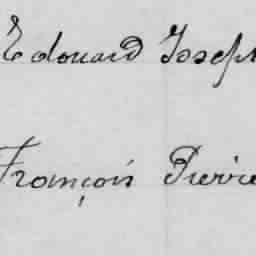 Edouard Joseph
François Pierre